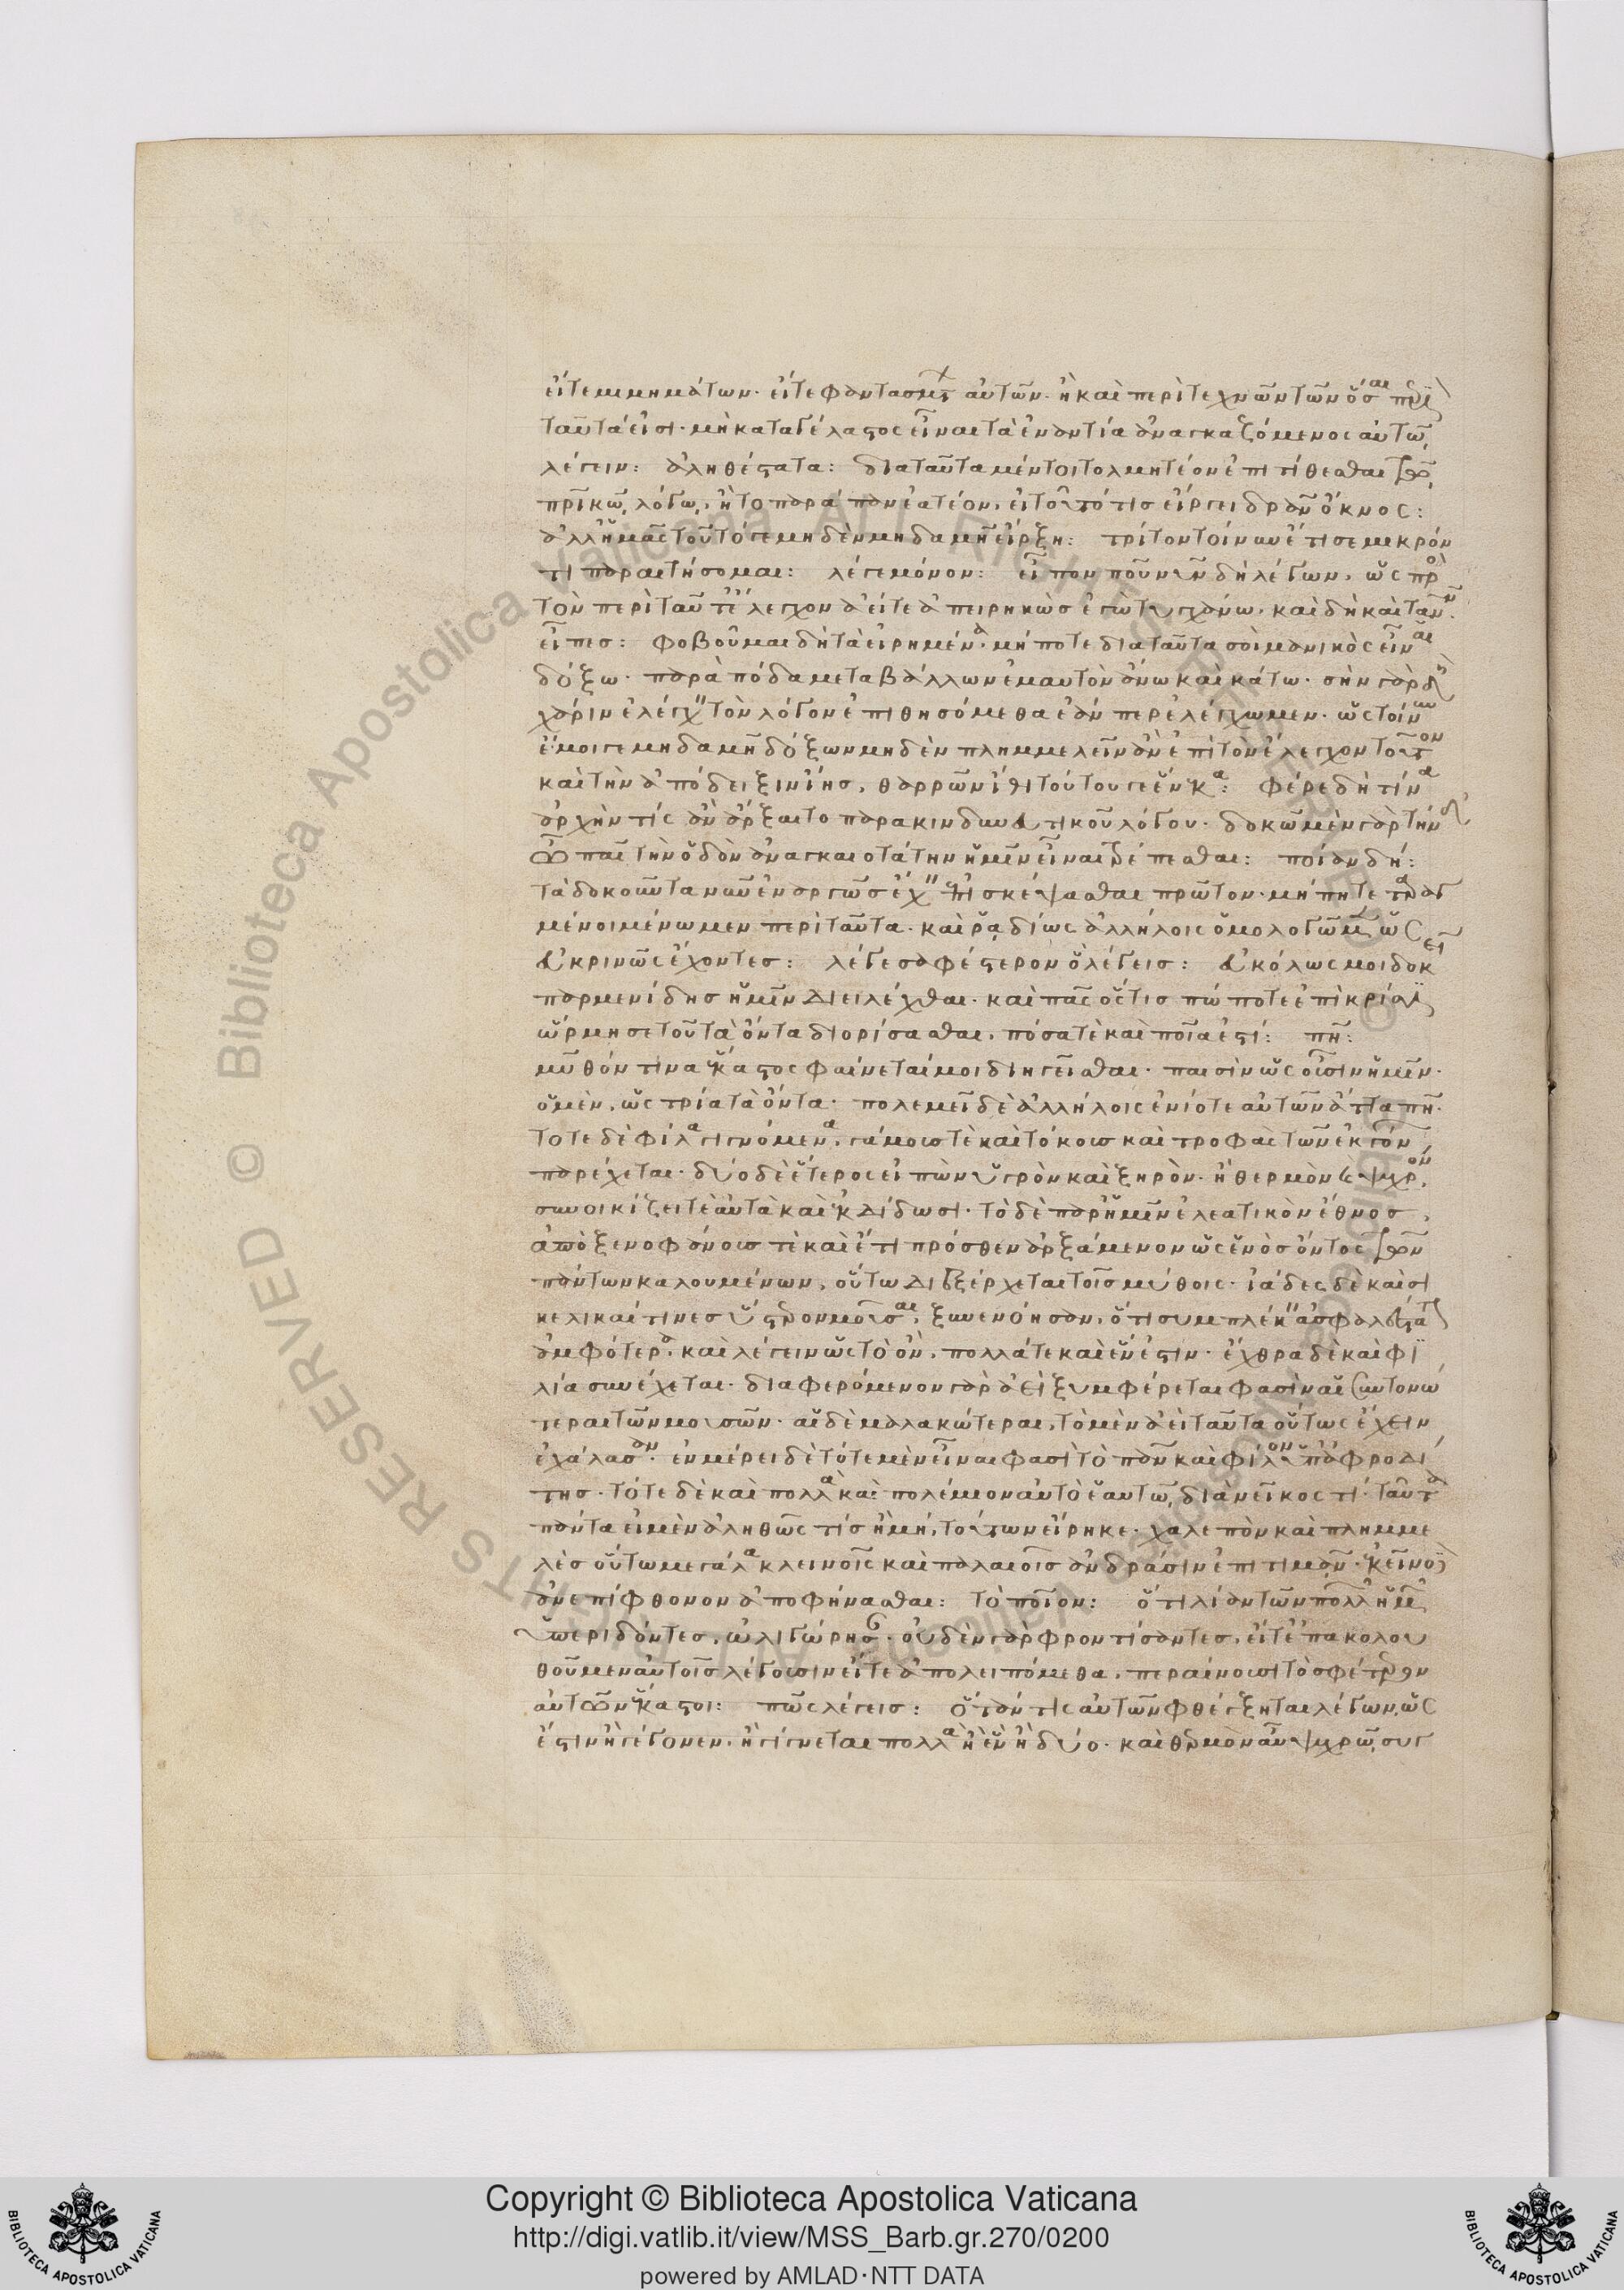 εἴτε μιμημάτων. εἴτε φαντασμάτων αὐτῶν. ἢ καὶ περὶ τεχνῶν τῶν ὅσαι περὶ
ταῦτά εἰσι. μὴ καταγέλαστος εἶναι τὰ ἐναντία ἀναγκαζόμενος αὑτῷ
λέγειν: ἀληθέστατα: διὰ ταῦτα μέντοι τολμητέον ἐπιτίθεσθαι τῷ
πατρικῷ λόγῳ. ἢ τὸ παράπαν ἐατέον. εἰ τοῦτό τις εἴργει δρᾶν ὄκνος:
ἀλλ' ἡμᾶς τοῦτό γε μηδὲν μηδαμῇ εἴρξῃ: τρίτον τοίνυν ἔτι σε μικρόν
τι παραιτήσομαι: λέγε μόνον: εἶπον που νῦν δὴ λέγων. ὡς πρὸς
τὸν περὶ ταῦτ' ἔλεγχον ἀεί τε ἀπειρηκὼς ἐγὼ τυγχάνω. καὶ δὴ καὶ τανῦν.
εἶπες: φοβοῦμαι δὴ τὰ εἰρημένα. μήποτε διὰ ταῦτα σοι μανικὸς εἶναι
δόξω. παρὰ πόδα μεταβάλλων ἐμαυτὸν ἄνω καὶ κάτω. σὴν γὰρ δὴ
χάριν ἐλέγχειν τὸν λόγον ἐπιθησόμεθα ἐάν περ ἐλέγχωμεν. ὡς τοίνυν
ἔμοιγε μηδαμῇ δόξων μηδὲν πλημμελεῖν ἂν ἐπὶ τὸν ἔλεγχον τοῦτον
καὶ τὴν ἀπόδειξιν ἴῃς. θαρρῶν ἴθι τούτου γε ἕνεκα: φέρε δὴ τίνα
ἀρχήν τις ἂν ἄρξαιτο παρακινδυνευτικοῦ λόγου. δοκῶ μὲν γὰρ τήνδ'
ὦ παῖ τὴν ὁδὸν ἀναγκαιοτάτην ἡμῖν εἶναι τρέπεσθαι: ποίαν δή:
τὰ δοκοῦντα νῦν ἐναργῶς ἔχειν ἐπισκέψασθαι πρῶτον. μή πῃ τεταραγ
μένοι μένωμεν περὶ ταῦτα. καὶ ῥᾳδίως ἀλλήλοις ὁμολογῶμεν ὡς
εὐκρινῶς ἔχοντες: λέγε σαφέστερον ὃ λέγεις: εὐκόλως μοι δοκεῖ
παρμενίδης ἡμῖν διειλέχθαι. καὶ πᾶς ὅστις πώποτε ἐπὶ κρίσιν
ὥρμησε τοῦ τὰ ὄντα διορίσασθαι. πόσα τε καὶ ποῖα ἐστί: πῇ:
μῦθόν τινα ἕκαστος φαίνεταί μοι διηγεῖσθαι. παισὶν ὡς οὖσιν ἡμῖν.
ὁ μὲν, ὡς τρία τὰ ὄντα. πολεμεῖ δὲ ἀλλήλοις ἐνίοτε αὐτῶν ἄττα πῃ.
τότε δὲ φίλα γιγνόμενα. γάμους τὲ καὶ τόκους καὶ τροφὰς τῶν ἐκγόνων
παρέχεται. δύο δὲ ἕτερος εἰπὼν ὑγρὸν καὶ ξηρὸν. ἢ θερμὸν καὶ ψυχρόν.
συνοικίζει τὲ αὐτὰ καὶ ἐκδίδωσι. τὸ δὲ παρ' ἡμῖν ἐλεατικὸν ἔθνος,
ἀπὸ ξενοφάνους τὲ καὶ ἔτι πρόσθεν ἀρξάμενον ὡς ἑνὸς ὄντος τῶν
πάντων καλουμένων. οὕτω διεξέρχεται τοῖς μύθοις. ἰάδες δὲ καὶ σι
κελικαί τινες ὕστερον μοῦσαι, ξυνενόησαν. ὅτι συμπλέκειν ἀσφαλέστατον
ἀμφότερα. καὶ λέγειν ὡς τὸ ὂν. πολλά τε καὶ ἕν ἐστιν. ἔχθρα δὲ καὶ φι
λία συνέχεται. διαφερόμενον γὰρ ἀεὶ ξυμφέρεται φασὶν αἱ συντονώ
τεραι τῶν μουσῶν. αἱ δὲ μαλακώτεραι, τὸ μὲν ἀεὶ ταῦτα οὕτως ἔχειν
ἐχάλασαν. ἐν μέρει δὲ τότε μὲν εἶναι φασὶ τὸ πᾶν καὶ φίλον ὑπ' ἀφροδί
της. τότε δὲ καὶ πολλὰ καὶ πολέμιον αὐτὸ ἑαυτῷ διὰ νεῖκος τι. ταῦτα
πάντα εἰ μὲν ἀληθῶς τὶς ἢ μὴ, τούτων εἴρηκε. χαλεπὸν καὶ πλημμε
λὲς οὕτω μεγάλα κλεινοῖς καὶ παλαιοῖς ἀνδράσιν ἐπιτιμᾶν. ἐκεῖνο δὲ
ἀνεπίφθονον ἀποφήνασθαι: τὸ ποῖον: ὅτι λίαν τῶν πολλῶν ἡμῶν
ὑπεριδόντες, ὠλιγώρησαν. οὐδὲν γὰρ φροντίσαντες. εἴτ' ἐπακολου
θοῦμεν αὐτοῖς λέγουσιν εἴτε ἀπολειπόμεθα. περαίνουσι τὸ σφέτερον
αὐτῶν ἕκαστοι: πῶς λέγεις: ὅταν τις αὐτῶν φθέγξηται λέγων, ὡς
ἔστιν ἢ γέγονεν. ἢ γίγνεται πολλὰ ἢ ἓν ἢ δύο. καὶ θερμὸν αὖ ψυχρῷ συγ
Copyright © Biblioteca Apostolica Vaticana
http://digi.vatlib.it/view/MSS_Barb.gr.270/0200
powered by AMLAD·NTT DATA